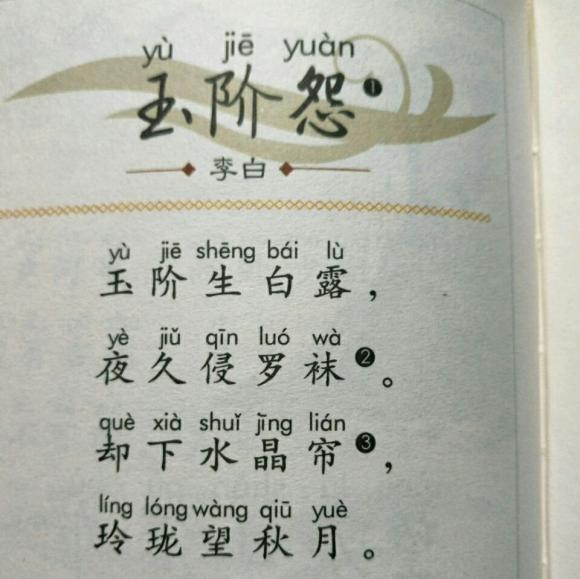 yù jiē yuàn
玉阶怨❶
李白
yù jiē shēng bái lù
玉阶生白露，
yè jiǔ qīn luó wà
夜久侵罗袜❷。
què xià shuǐ jīng lián
却下水晶帘❸，
líng lóng wàng qiū yuè
玲珑望秋月。